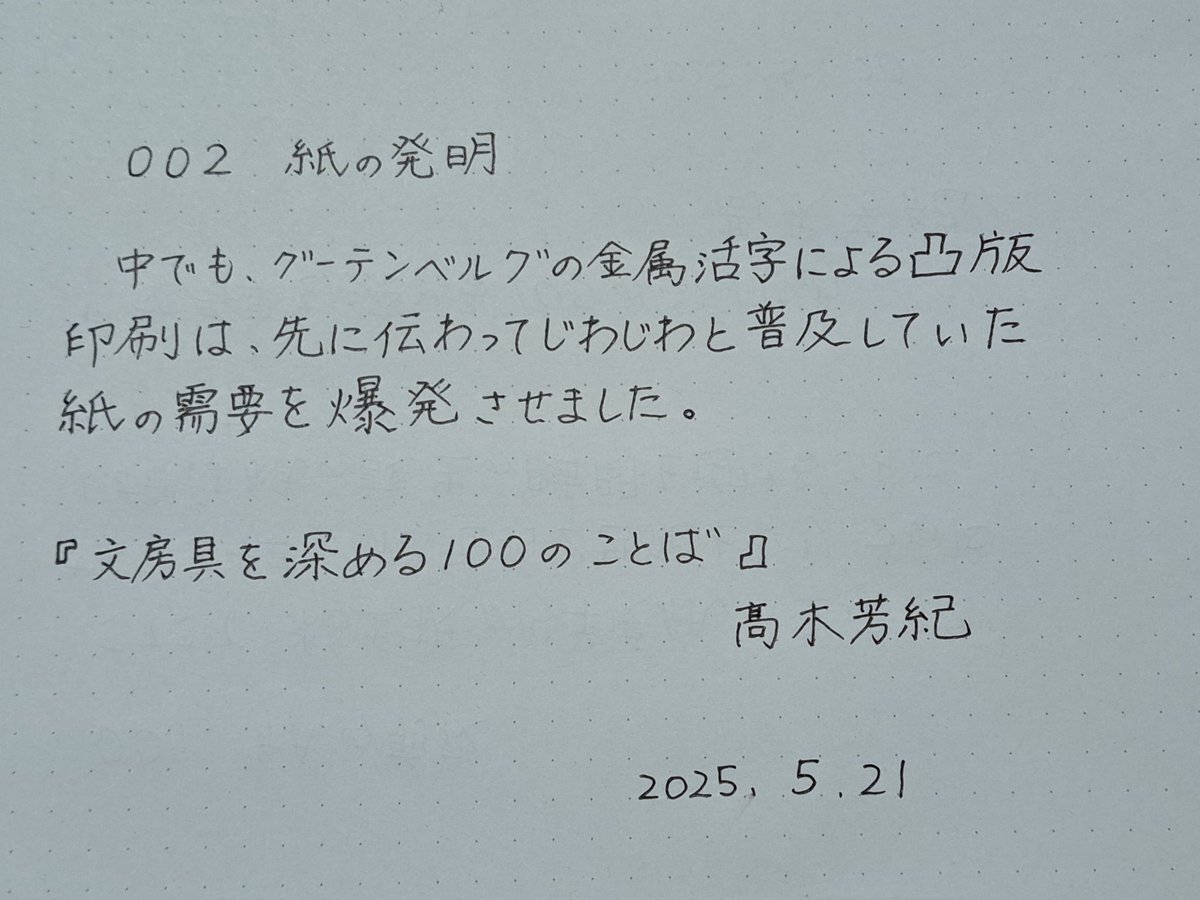 002 紙の発明
中でも、グーテンベルグの金属活字による凸版
印刷は、先に伝わってじわじわと普及していた
紙の需要を爆発させました。
『文房具を深める100のことば』
髙木芳紀
2025.5.21